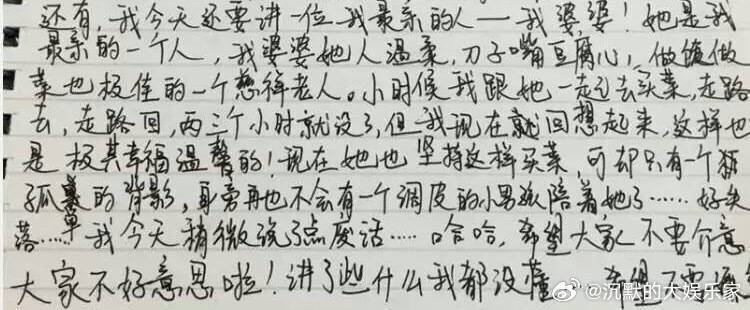 还有，我今天还要讲一位我最亲的人——我婆婆！她是我
最亲的一个人，我婆婆她人温柔，刀子嘴豆腐心，做饭做
菜也极佳的一个慈祥老人。小时候我跟她一起去买菜，走路
去，走路回，两三个小时就没了，但我现在就回想起来，这样也
是极其幸福温馨的！现在她也坚持这样买菜，可却只有一个
孤单的背影，身旁再也不会有一个调皮的小男孩陪着她了……好失
落……我今天稍微说了点废话……哈哈，希望大家不要介意
大家不好意思啦！讲了些什么我都没懂…希望不要
@沉默的大娱乐家